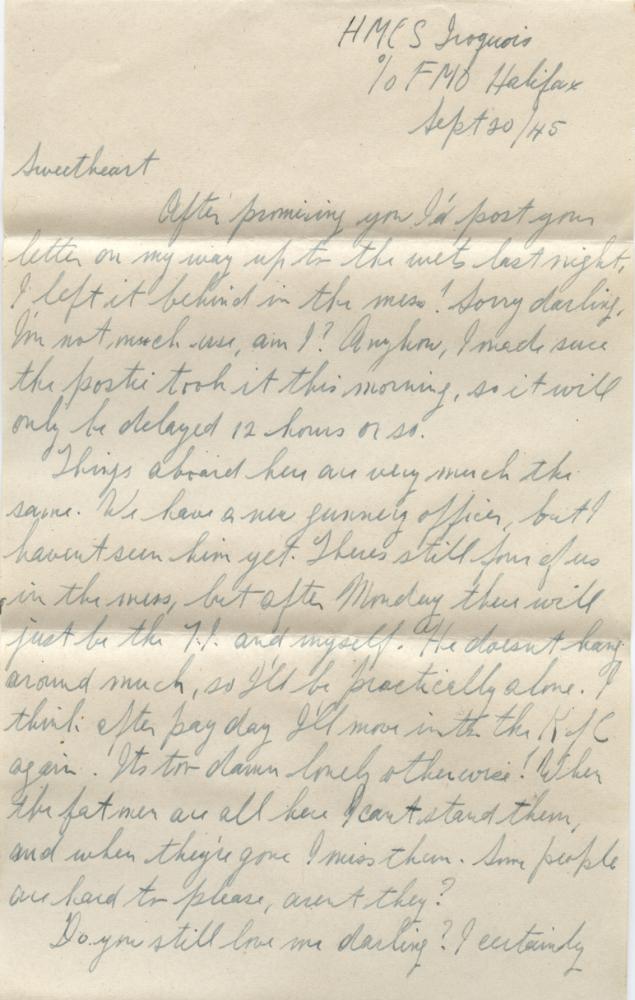 HMCS Iroquois
℅ FMO Halifax
Sept 20/45
Sweetheart
After promising you I'd post your
letter on my way up to the wets last night,
I left it behind in the mess! Sorry darling,
I'm not much use, am I? Anyhow, I made sure
the postie took it this morning, so it will
only be delayed 12 hours or so.
Things aboard here are very much the
same. We have a new gunnery officer, but I
havent seen him yet. Theres still four of us
in the mess, but after Monday there will
just be the T.I. and myself. He doesnt hang
around much, so I'll be practically alone. I
think after pay day I'll move into the K of C
again. Its too damn lonely otherwise! When
the fat men are all here I cant stand them,
and when they're gone I miss them. Some people
are hard to please, arent they?
Do you still love me darling? I certainly